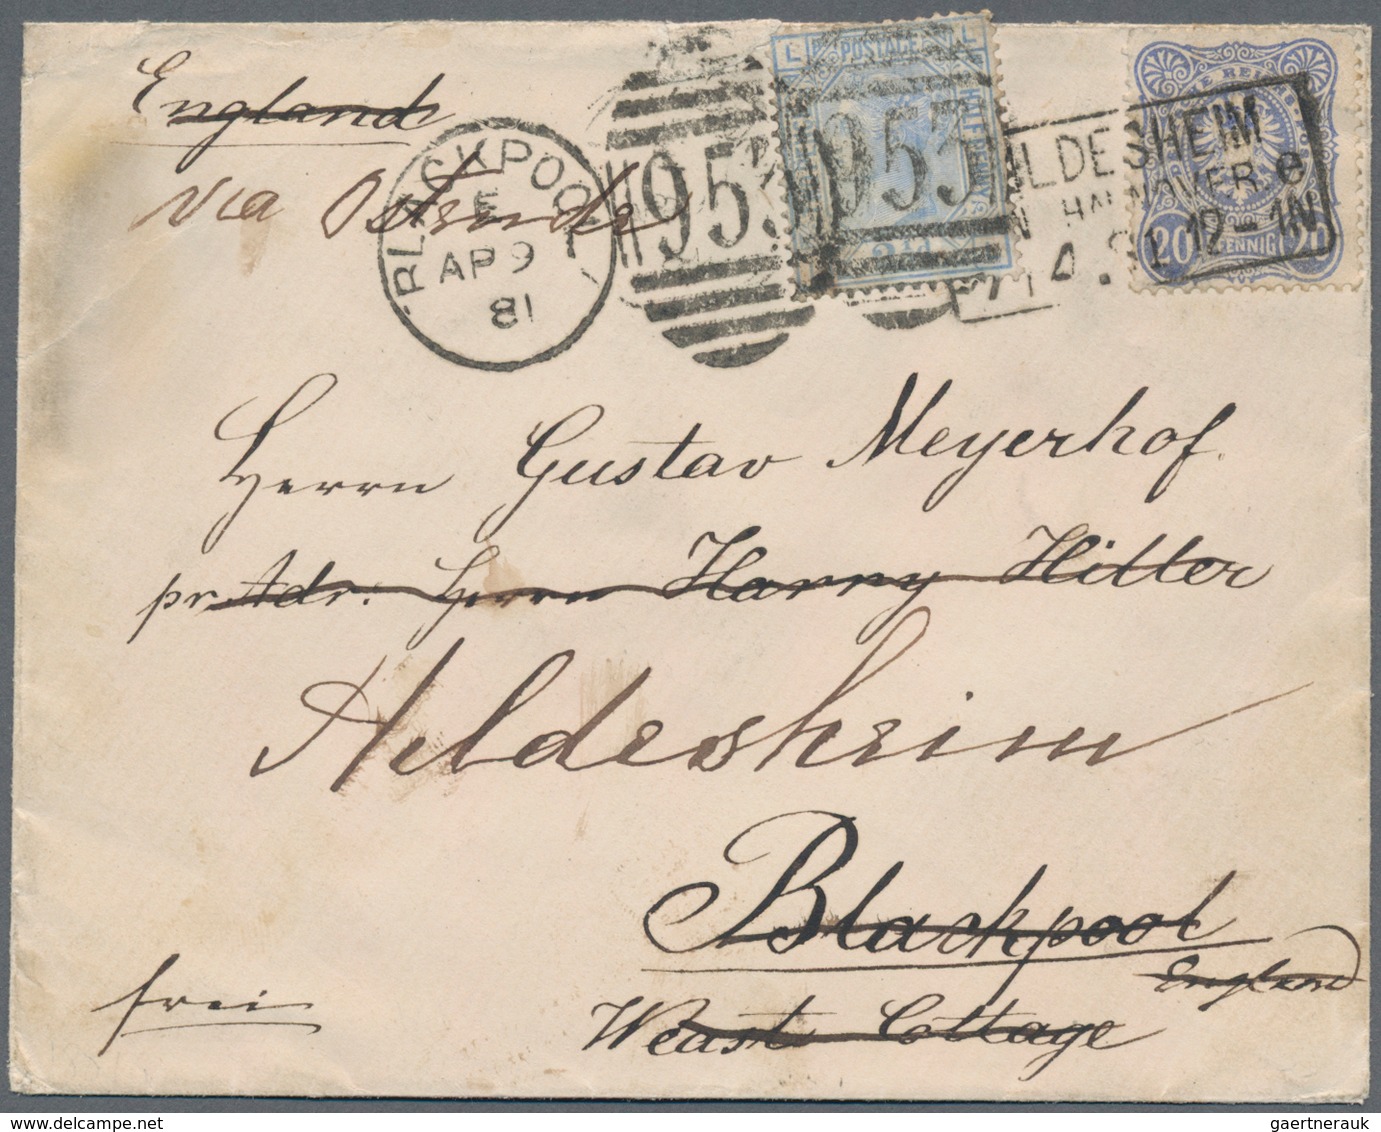 England
via Ostende
BLACKPOOL
E
AP 9
81
953
953
L
POSTAGE
L
HALF PENNY
HILDESHEIM
IN HANNOVER. e
7 4. 81. 12-1N
20 PFENNIG 20
Herrn Gustav Meyerhof.
pr Adr: Herrn Harry Hitter
Hildesheim
Blackpool
England
Weast Cottage
frei
gaertnerauk